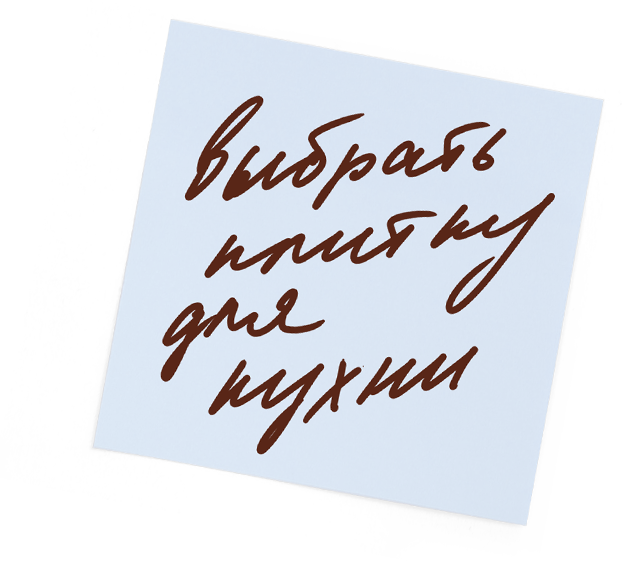 выбрать
плитку
для
кухни